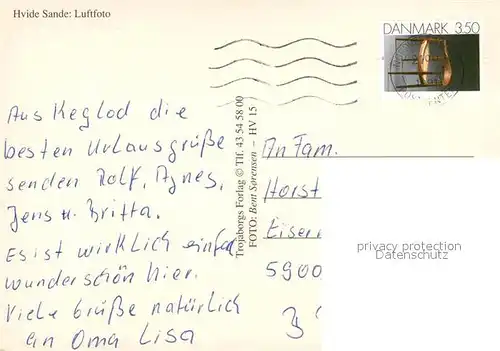 Hvide Sande: Luftfoto
DANMARK 3.50
Aus Keglod die
besten Urlausgrüße
senden Rolf, Agnes,
Jens u. Britta.
Es ist wirklich einfach
wunderschön hier.
Viele Grüße natürlich
an Oma Lisa
Trojaborgs Forlag © Tlf. 43 54 58 00
FOTO: Bent Sørensen – HV 15
An Fam.
Horst
Eiser
5900
privacy protection
Datenschutz